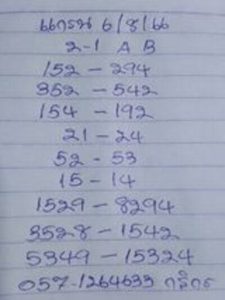 แกรน 6/8/66
2-1 A B
152 - 294
352 - 542
154 - 192
21 - 24
52 - 53
15 - 14
1529 - 8294
3528 - 1542
5349 - 15324
057-1264633 กสิกร